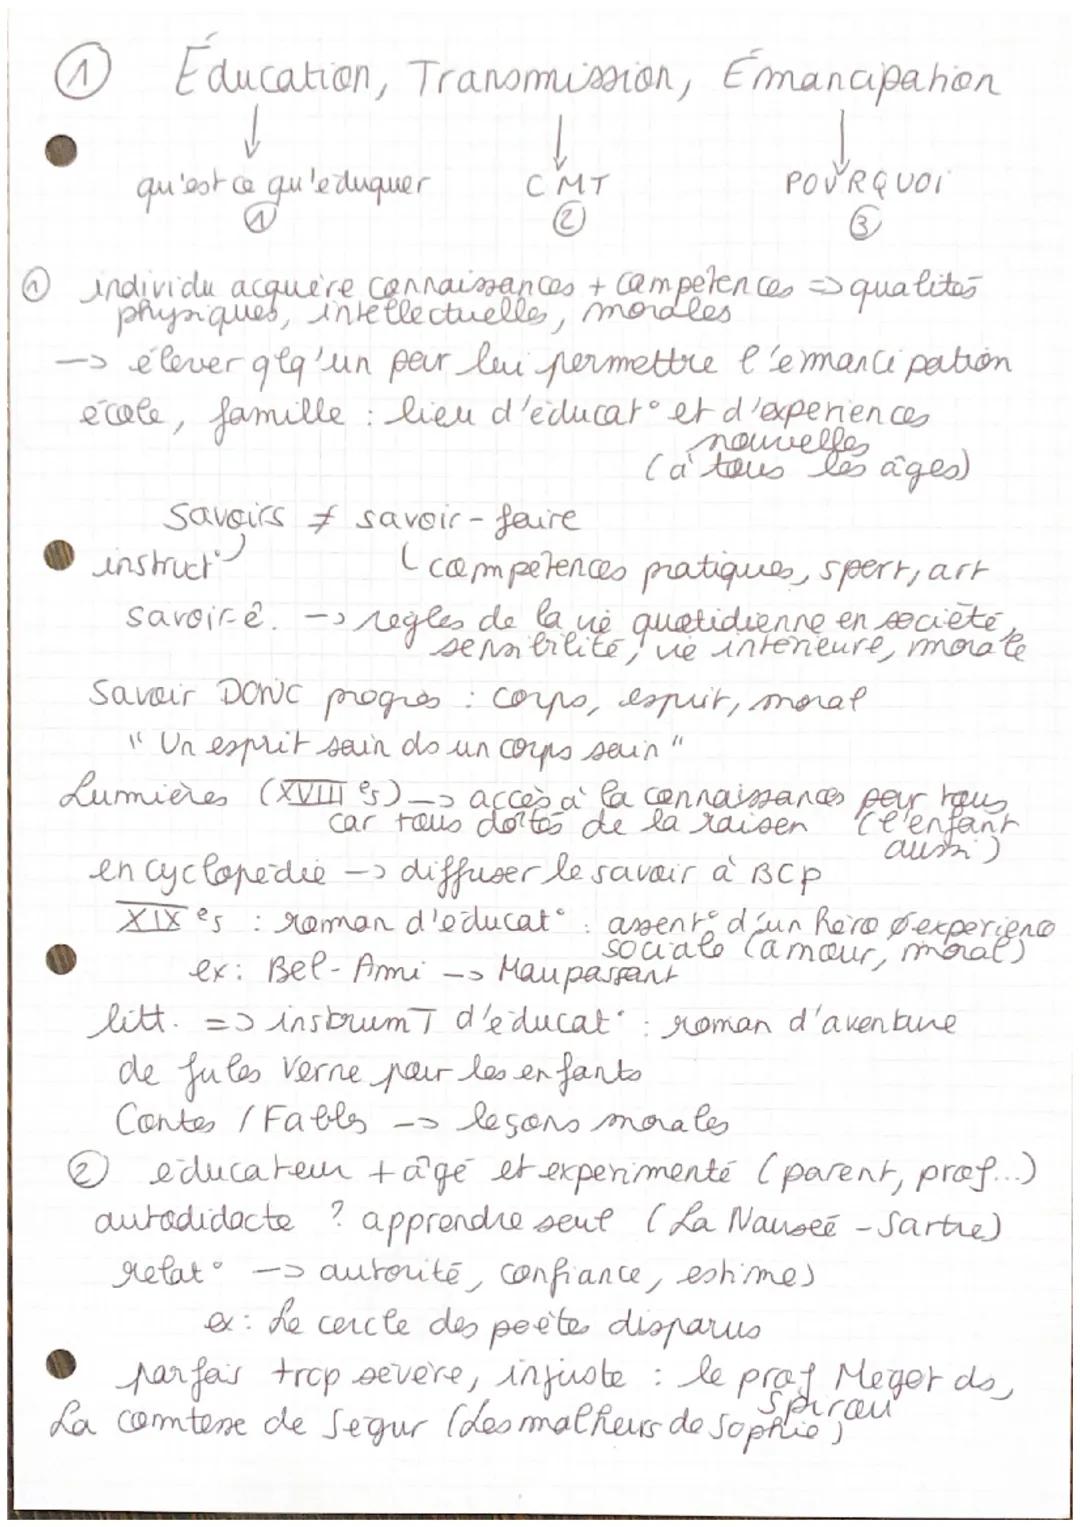 ① Éducation, Transmission, Émancipation
↓ ↓ ↓
qu'est ce qu'éduquer CMT POURQUOI
① ② ③
① individu acquière connaissances + compétences => qualités
physiques, intellectuelles, morales
-> élever qlq'un pour lui permettre l'émancipation
école, famille : lieu d'éducat° et d'expériences
nouvelles
(à tous les âges)
Savoirs ≠ savoir-faire
instruct° compétences pratiques, sport, art
savoir-ê. -> règles de la vie quotidienne en société,
sensibilité, vie intérieure, morale
Savoir DONC progrès : corps, esprit, moral
"Un esprit sain ds un corps sain"
Lumières (XVIII es) -> accès à la connaissances pour tous
car tous dôtés de la raison (l'enfant
aussi)
encyclopédie -> diffuser le savoir à BCP
XIX es : roman d'éducat° : d'un héro expérience
sociale (amour, moral)
ex: Bel-Ami -> Maupassant
litt. => instrumT d'éducat° : roman d'aventure
de Jules Verne pour les enfants
Contes / Fables -> leçons morales
② éducateur + âgé et expérimenté (parent, prof...)
autodidacte ? apprendre seul (La Nauseé - Sartre)
relat° -> autorité, confiance, estime)
ex: Le cercle des poètes disparus
parfois trop sévère, injuste : le prof Mégot ds,
Spirou
La comtesse de Ségur (Les malheurs de Sophie)